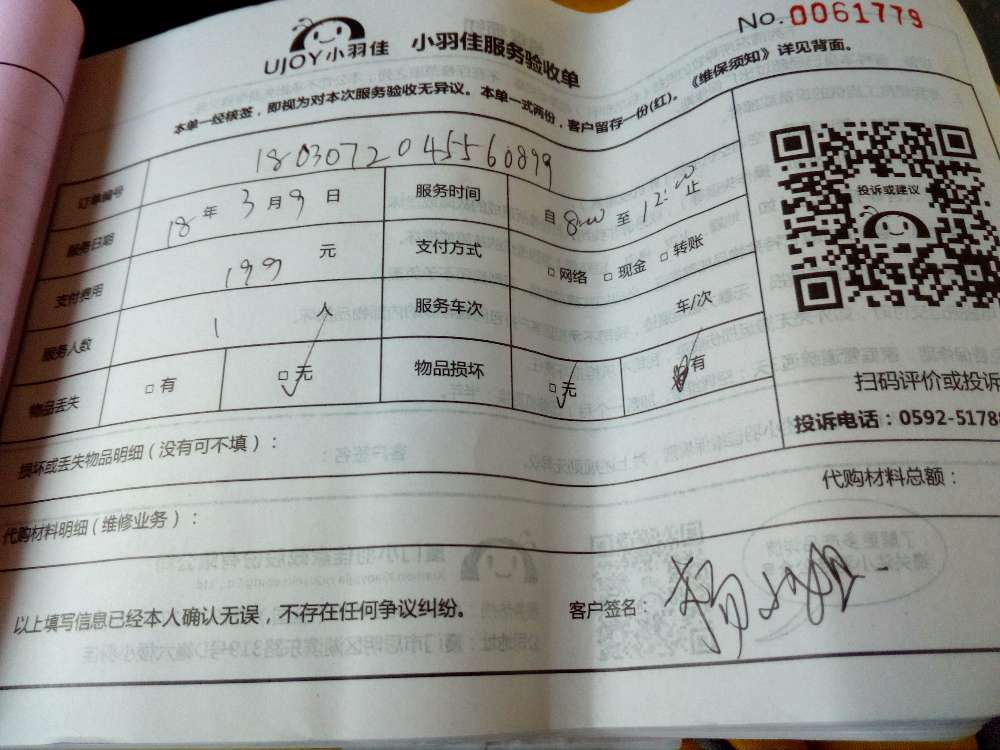 UJOY小羽佳 小羽佳服务验收单
No.0061779
本单一经核签，即视为对本次服务验收无异议。本单一式两份，客户留存一份(红)。《维保须知》详见背面。
订单编号 18030720455560899
服务日期 18年3月9日 服务时间 自8:00至12:00止
支付费用 199元 支付方式 □网络 □现金 □转账
服务人数 1人 服务车次 车/次
物品丢失 □有 □无 物品损坏 □无 有
投诉或建议
扫码评价或投诉
投诉电话：0592-5178
损坏或丢失物品明细（没有可不填）：
代购材料明细（维修业务）： 代购材料总额：
以上填写信息已经本人确认无误，不存在任何争议纠纷。 客户签名：杨小姐